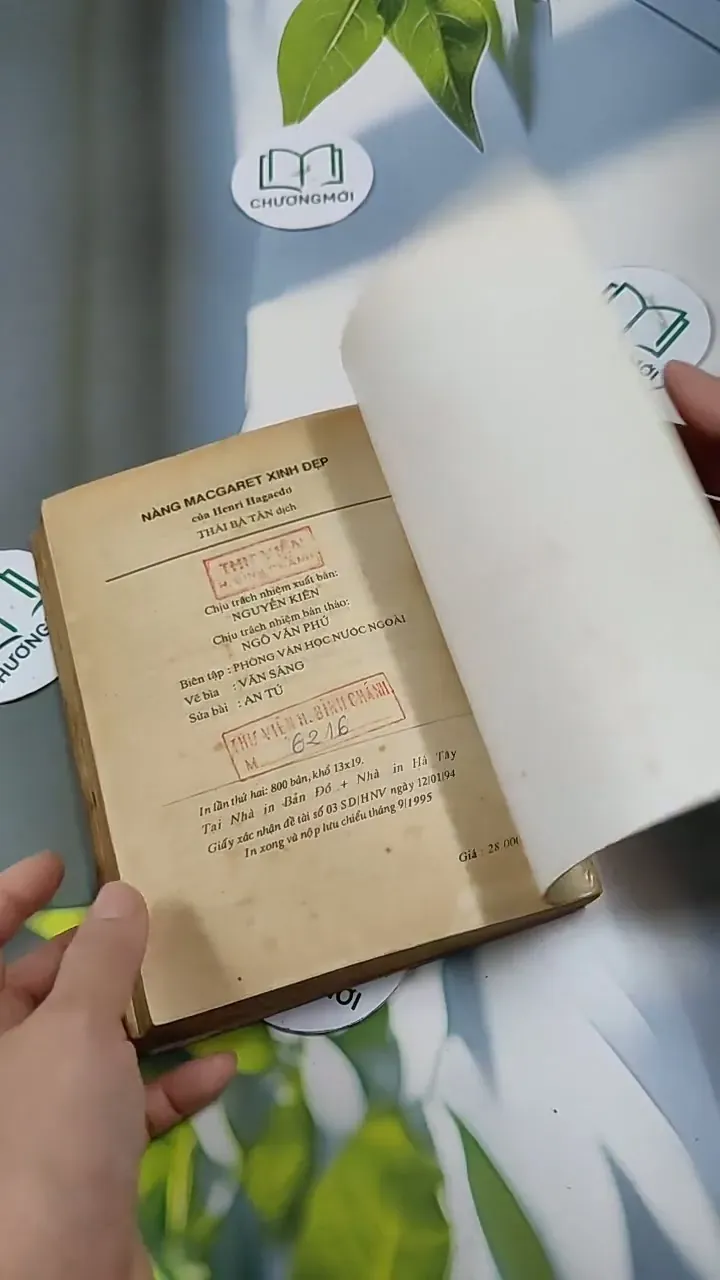 CHƯƠNGMỚI
NÀNG MACGARET XINH ĐẸP
của Henri Hagaedo
THÁI BÁ TÂN dịch
THƯ VIỆN
Chịu trách nhiệm xuất bản:
NGUYỄN KIÊN
Chịu trách nhiệm bản thảo:
NGÔ VĂN PHÚ
Biên tập : PHÒNG VĂN HỌC NƯỚC NGOÀI
Vẽ bìa : VĂN SÁNG
Sửa bài : AN TÚ
THƯ VIỆN H. BÌNH CHÁNH
M 6216
In lần thứ hai: 800 bản, khổ 13x19.
Tại Nhà in Bản Đồ + Nhà in Hà Tây
Giấy xác nhận đề tài số 03 SD/HNV ngày 12/01/94
In xong và nộp lưu chiểu tháng 9/1995
Giá : 28 000